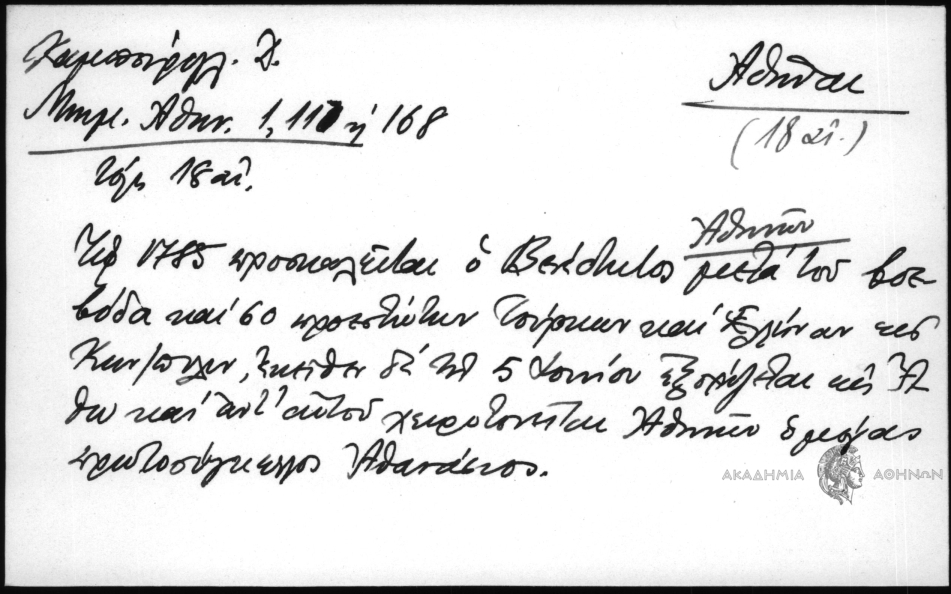 Καμπούρογλ. Δ.
Μνημ. Ἀθην. 1, 117 ἡ 168
τέλη 18 αἰ.
Ἀθῆναι
(18 αἰ.)
Τῷ 1785 προσκαλεῖται ὁ Βενέδικτος Ἀθηνῶν μετὰ τοῦ βοε-
βόδα καὶ 60 προεστώτων Τούρκων καὶ Ἑλλήνων εἰς
Κων/πολιν, ἐκεῖθεν δὲ τῇ 5 Ἰουνίου ἐξορίζεται εἰς Ἄ-
θω καὶ ἀντ' αὐτοῦ χειροτονεῖται Ἀθηνῶν ὁ μέγας
πρωτοσύγκελλος Ἀθανάσιος.
ΑΚΑΔΗΜΙΑ ΑΘΗΝΩΝ